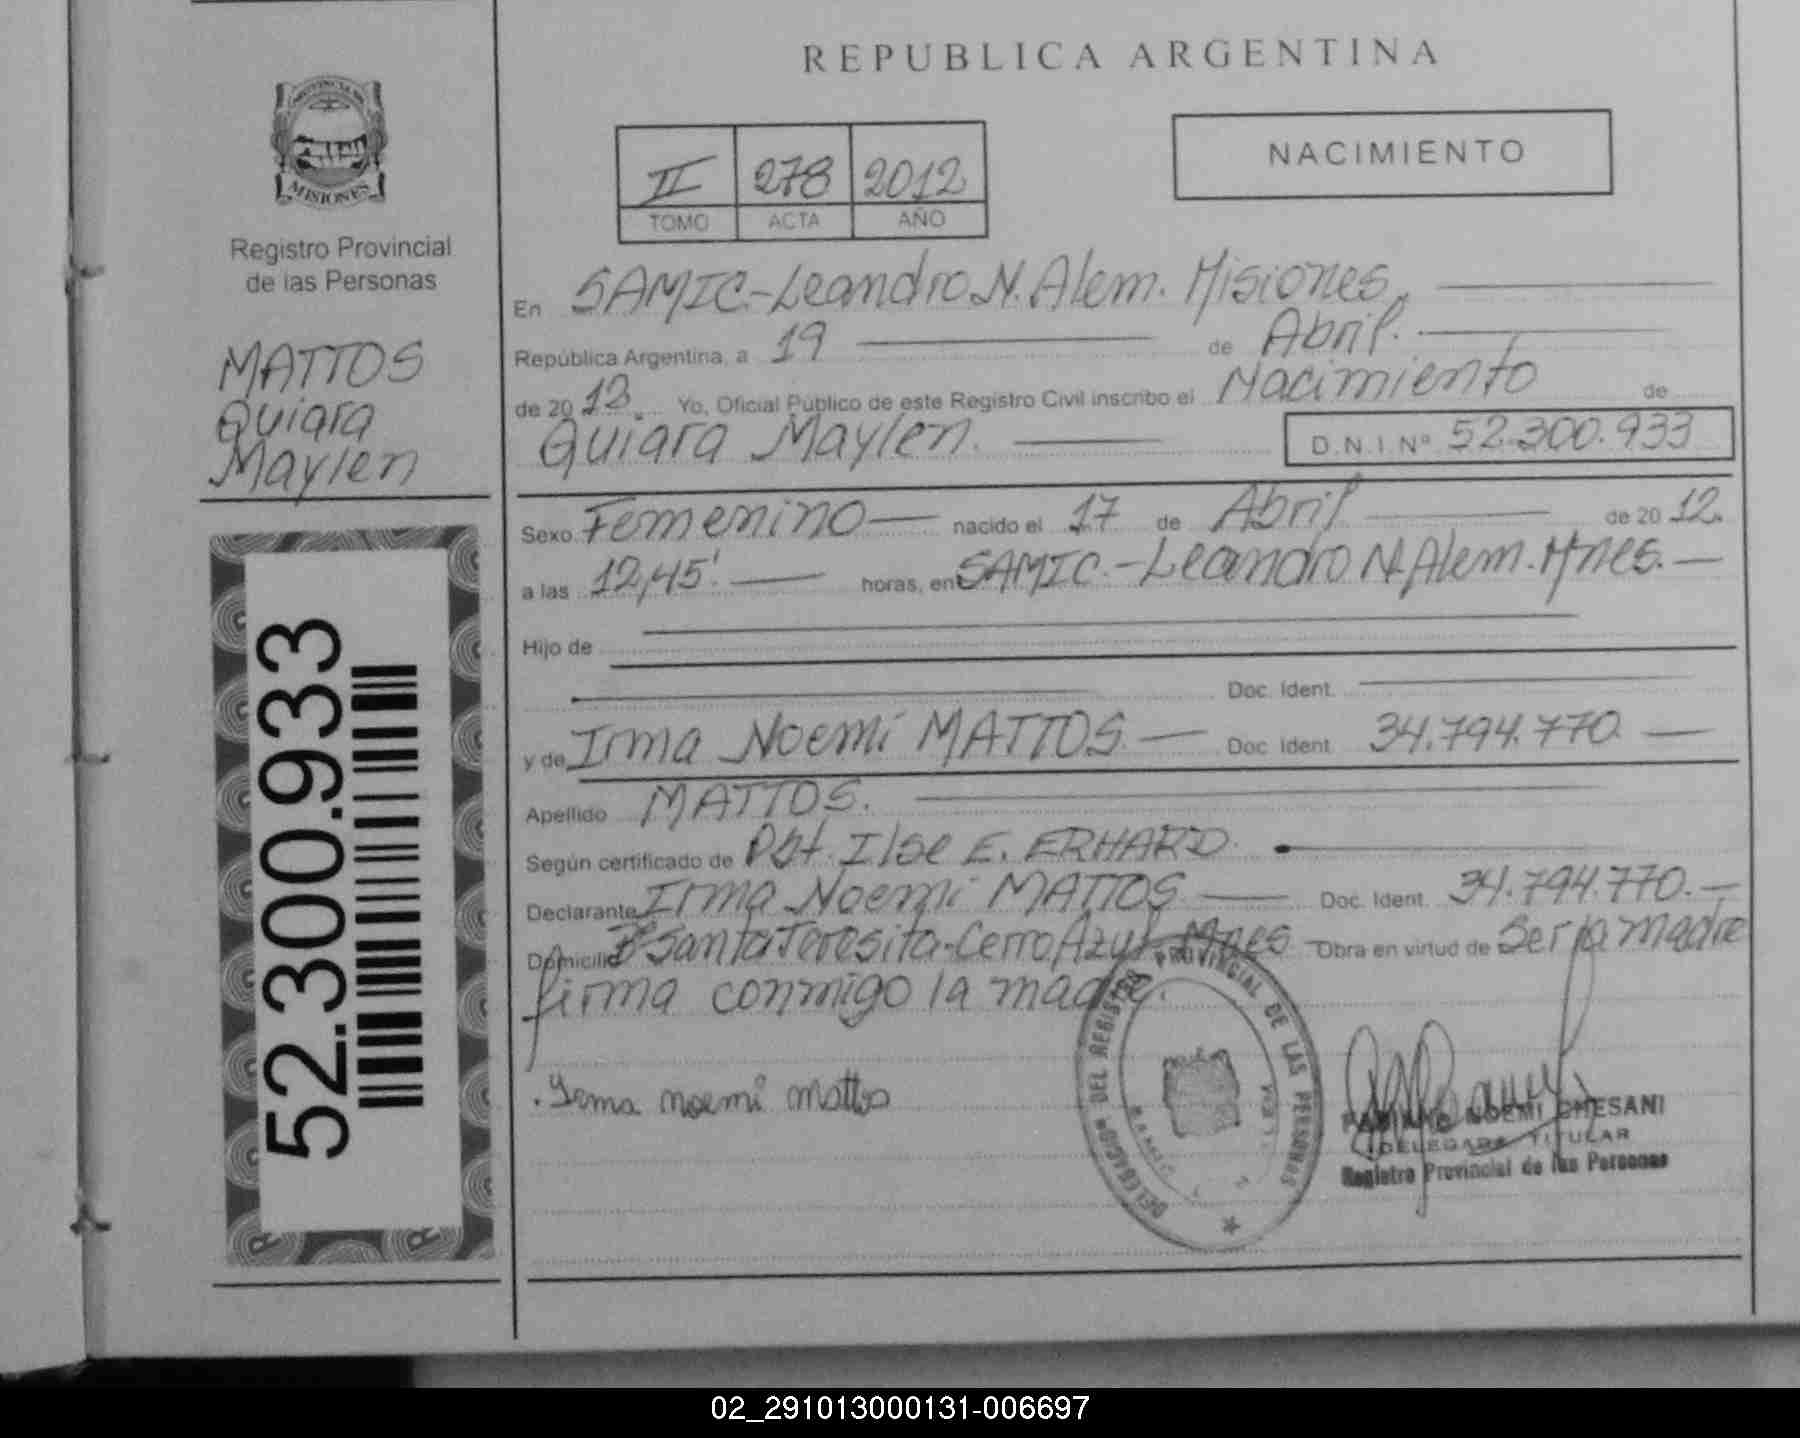 REPUBLICA ARGENTINA
PROVINCIA DE
MISIONES
Registro Provincial
de las Personas
MATTOS
Quiara
Maylen
52.300.933
II 278 2012
TOMO ACTA AÑO
NACIMIENTO
En SAMIC-Leandro N. Alem. Misiones,
República Argentina, a 19 de Abril.
de 20 12. Yo, Oficial Público de este Registro Civil inscribo el Nacimiento de
Quiara Maylen. D.N.I.Nº 52.300.933
Sexo Femenino nacido el 17 de Abril de 20 12.
a las 12,45'. horas, en SAMIC.-Leandro N. Alem. Mnes.
Hijo de
Doc. Ident.
y de Irma Noemí MATTOS Doc. Ident. 34.794.770
Apellido MATTOS.
Según certificado de Pbt. Ilse E. ERHARD.
Declarante Irma Noemi MATTOS Doc. Ident. 34.794.770.
Domicilio Bº Santa Teresita-Cerro Azul-Mnes Obra en virtud de Ser la madre
firma conmigo la madre.
Irma noemi mattos
DELEGACION DEL REGISTRO PROVINCIAL DE LAS PERSONAS
NOEMI CHESANI
DELEGADA TITULAR
Registro Provincial de las Personas
02_291013000131-006697